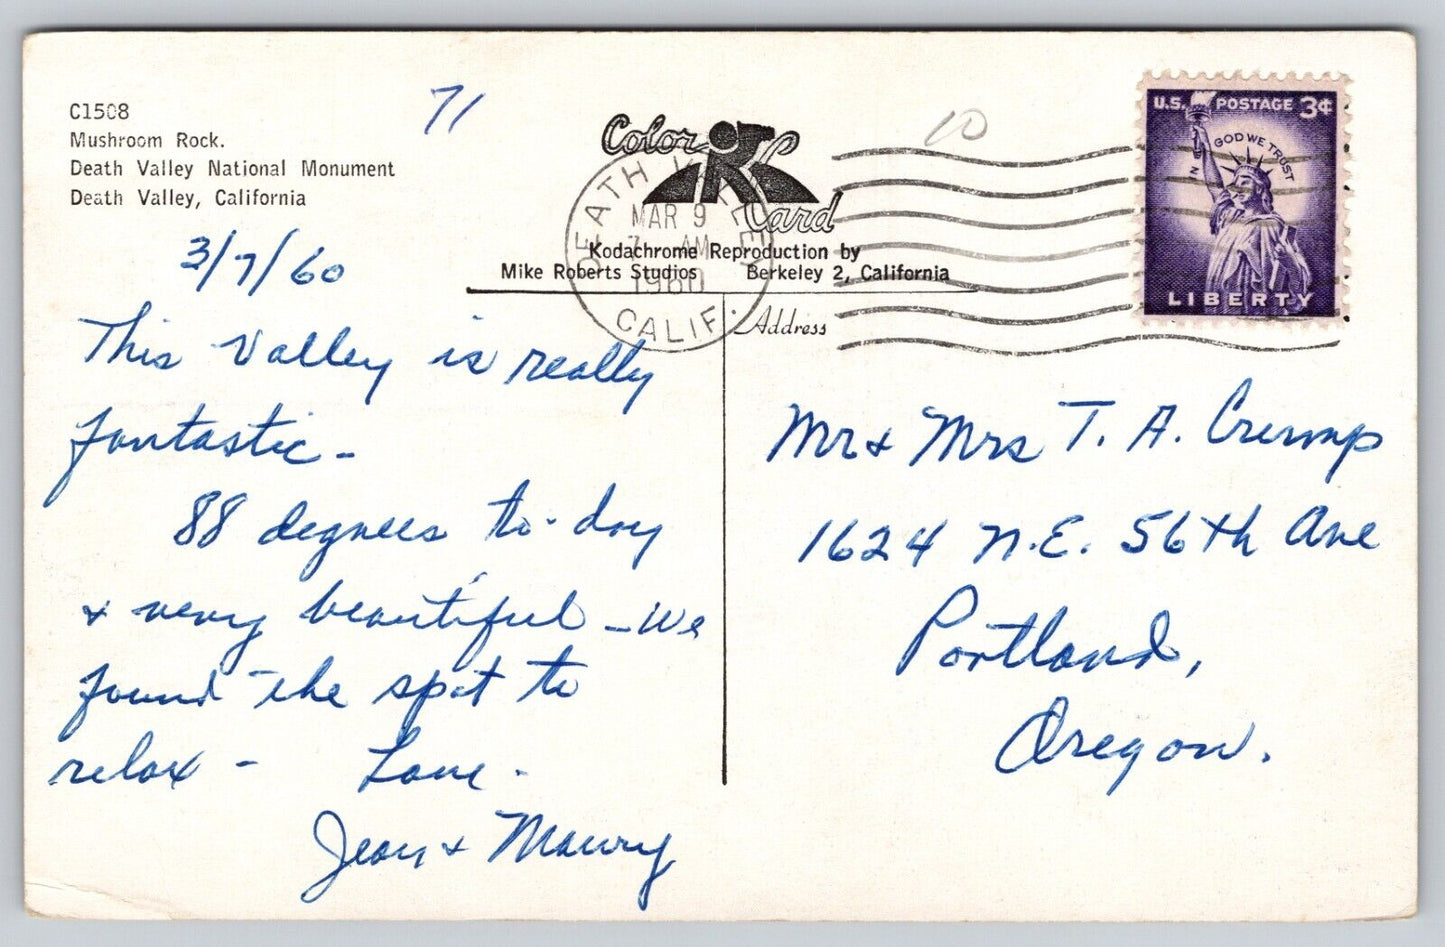 C1508
Mushroom Rock.
Death Valley National Monument
Death Valley, California
71
10
Color Card
Kodachrome Reproduction by
Mike Roberts Studios Berkeley 2, California
DEATH VALLEY
MAR 9
7 AM
1960
CALIF.
U.S. POSTAGE 3¢
IN GOD WE TRUST
LIBERTY
3/7/60
This Valley is really
fantastic -
88 degrees to-day
& very beautiful - We
found the spot to
relax - Love.
Jean & Maury
Address
Mr & Mrs T. A. Crump
1624 N.E. 56th Ave
Portland,
Oregon.